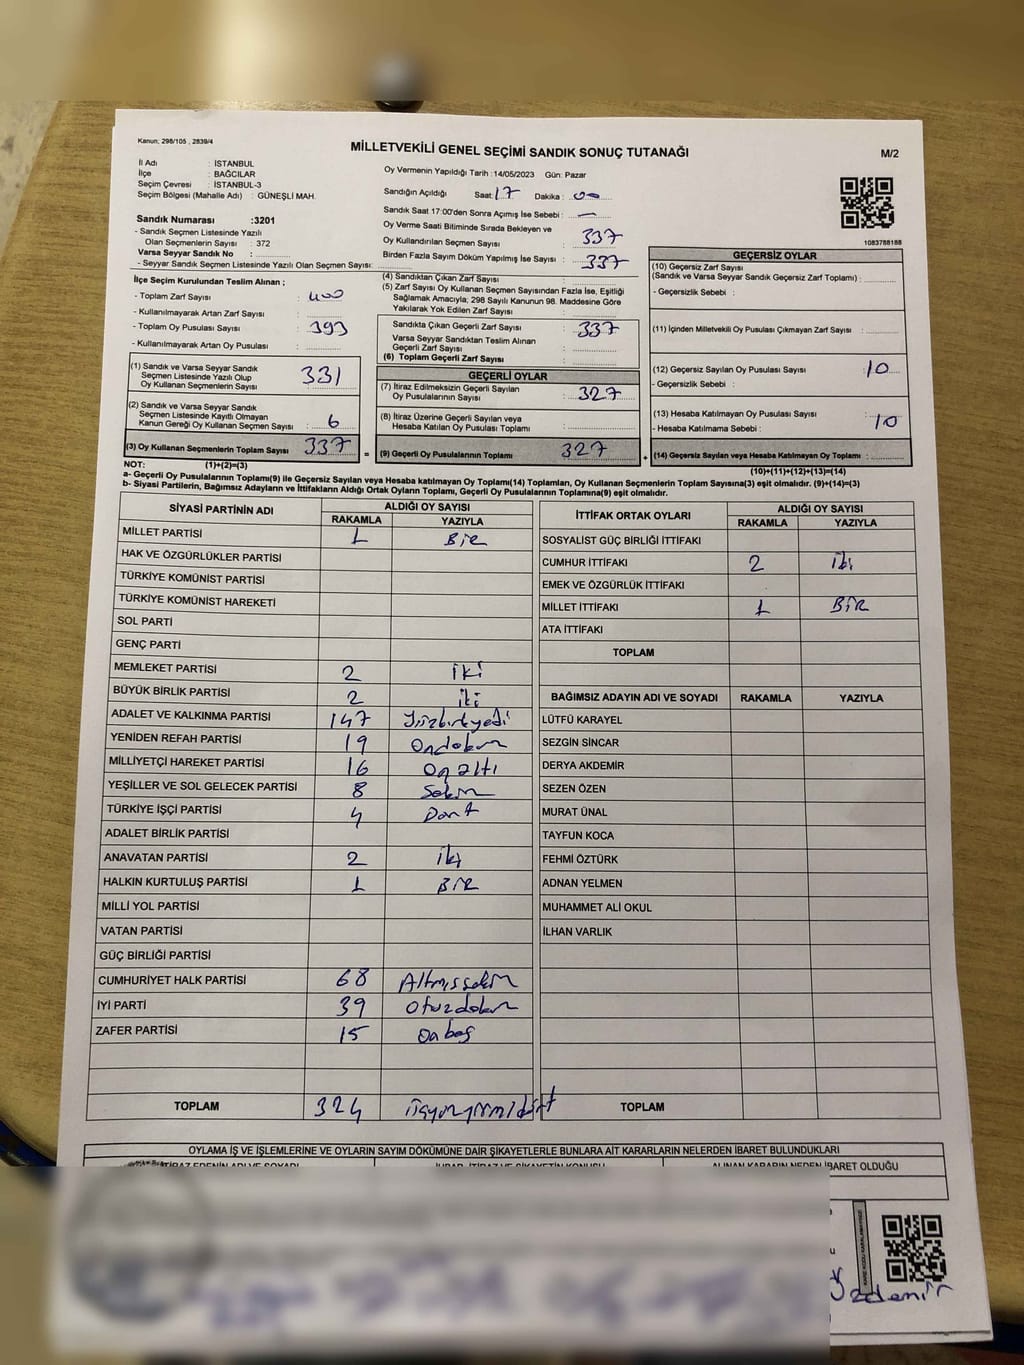 Kanun; 298/105 , 2839/4
MİLLETVEKİLİ GENEL SEÇİMİ SANDIK SONUÇ TUTANAĞI
M/2
İl Adı : İSTANBUL
İlçe : BAĞCILAR
Seçim Çevresi : İSTANBUL-3
Seçim Bölgesi (Mahalle Adı) : GÜNEŞLİ MAH.
Sandık Numarası :3201
- Sandık Seçmen Listesinde Yazılı
Olan Seçmenlerin Sayısı : 372
Varsa Seyyar Sandık No :
- Seyyar Sandık Seçmen Listesinde Yazılı Olan Seçmen Sayısı:
Oy Vermenin Yapıldığı Tarih :14/05/2023 Gün: Pazar
Sandığın Açıldığı Saat: 17 Dakika : 00
Sandık Saat 17:00'den Sonra Açılmış İse Sebebi : —
Oy Verme Saati Bitiminde Sırada Bekleyen ve
Oy Kullandırılan Seçmen Sayısı : 337
Birden Fazla Sayım Döküm Yapılmış İse Sayısı : 337
1083788188
İlçe Seçim Kurulundan Teslim Alınan ;
- Toplam Zarf Sayısı : 400
- Kullanılmayarak Artan Zarf Sayısı :
- Toplam Oy Pusulası Sayısı : 393
- Kullanılmayarak Artan Oy Pusulası :
(1) Sandık ve Varsa Seyyar Sandık
Seçmen Listesinde Yazılı Olup
Oy Kullanan Seçmenlerin Sayısı 331
(2) Sandık ve Varsa Seyyar Sandık
Seçmen Listesinde Kayıtlı Olmayan
Kanun Gereği Oy Kullanan Seçmen Sayısı : 6
(3) Oy Kullanan Seçmenlerin Toplam Sayısı 337
(1)+(2)=(3)
(4) Sandıktan Çıkan Zarf Sayısı :
(5) Zarf Sayısı Oy Kullanan Seçmen Sayısından Fazla İse, Eşitliği
Sağlamak Amacıyla; 298 Sayılı Kanunun 98. Maddesine Göre
Yakılarak Yok Edilen Zarf Sayısı :
Sandıkta Çıkan Geçerli Zarf Sayısı : 337
Varsa Seyyar Sandıktan Teslim Alınan
Geçerli Zarf Sayısı :
(6) Toplam Geçerli Zarf Sayısı :
GEÇERLİ OYLAR
(7) İtiraz Edilmeksizin Geçerli Sayılan
Oy Pusulalarının Sayısı : 327
(8) İtiraz Üzerine Geçerli Sayılan veya
Hesaba Katılan Oy Pusulası Toplamı :
= (9) Geçerli Oy Pusulalarının Toplamı 327
GEÇERSİZ OYLAR
(10) Geçersiz Zarf Sayısı
(Sandık ve Varsa Seyyar Sandık Geçersiz Zarf Toplamı) :
- Geçersizlik Sebebi :
(11) İçinden Milletvekili Oy Pusulası Çıkmayan Zarf Sayısı :
(12) Geçersiz Sayılan Oy Pusulası Sayısı : 10
- Geçersizlik Sebebi :
(13) Hesaba Katılmayan Oy Pusulası Sayısı :
- Hesaba Katılmama Sebebi : 10
+ (14) Geçersiz Sayılan veya Hesaba Katılmayan Oy Toplamı :
(10)+(11)+(12)+(13)=(14)
NOT:
a- Geçerli Oy Pusulalarının Toplamı(9) ile Geçersiz Sayılan veya Hesaba katılmayan Oy Toplamı(14) Toplamları, Oy Kullanan Seçmenlerin Toplam Sayısına(3) eşit olmalıdır. (9)+(14)=(3)
b- Siyasi Partilerin, Bağımsız Adayların ve İttifakların Aldığı Ortak Oyların Toplamı, Geçerli Oy Pusulalarının Toplamına(9) eşit olmalıdır.
SİYASİ PARTİNİN ADI ALDIĞI OY SAYISI
RAKAMLA YAZIYLA
MİLLET PARTİSİ 1 Bir
HAK VE ÖZGÜRLÜKLER PARTİSİ
TÜRKİYE KOMÜNİST PARTİSİ
TÜRKİYE KOMÜNİST HAREKETİ
SOL PARTİ
GENÇ PARTİ
MEMLEKET PARTİSİ 2 iki
BÜYÜK BİRLİK PARTİSİ 2 iki
ADALET VE KALKINMA PARTİSİ 147 Yüzkırkyedi
YENİDEN REFAH PARTİSİ 19 Ondokuz
MİLLİYETÇİ HAREKET PARTİSİ 16 On altı
YEŞİLLER VE SOL GELECEK PARTİSİ 8 Sekiz
TÜRKİYE İŞÇİ PARTİSİ 4 Dört
ADALET BİRLİK PARTİSİ
ANAVATAN PARTİSİ 2 iki
HALKIN KURTULUŞ PARTİSİ 1 BİR
MİLLİ YOL PARTİSİ
VATAN PARTİSİ
GÜÇ BİRLİĞİ PARTİSİ
CUMHURİYET HALK PARTİSİ 68 Altmışsekiz
İYİ PARTİ 39 Otuzdokuz
ZAFER PARTİSİ 15 Onbeş
TOPLAM 324 üçyüzyirmidört
İTTİFAK ORTAK OYLARI ALDIĞI OY SAYISI
RAKAMLA YAZIYLA
SOSYALİST GÜÇ BİRLİĞİ İTTİFAKI
CUMHUR İTTİFAKI 2 iki
EMEK VE ÖZGÜRLÜK İTTİFAKI
MİLLET İTTİFAKI 1 BİR
ATA İTTİFAKI
TOPLAM
BAĞIMSIZ ADAYIN ADI VE SOYADI RAKAMLA YAZIYLA
LÜTFÜ KARAYEL
SEZGİN SİNCAR
DERYA AKDEMİR
SEZEN ÖZEN
MURAT ÜNAL
TAYFUN KOCA
FEHMİ ÖZTÜRK
ADNAN YELMEN
MUHAMMET ALİ OKUL
İLHAN VARLIK
TOPLAM
OYLAMA İŞ VE İŞLEMLERİNE VE OYLARIN SAYIM DÖKÜMÜNE DAİR ŞİKAYETLERLE BUNLARA AİT KARARLARIN NELERDEN İBARET BULUNDUKLARI
İTİRAZ EDENİN ADI VE SOYADI İHBAR, İTİRAZ VE ŞİKAYETİN KONUSU ALINAN KARARIN NEDEN İBARET OLDUĞU